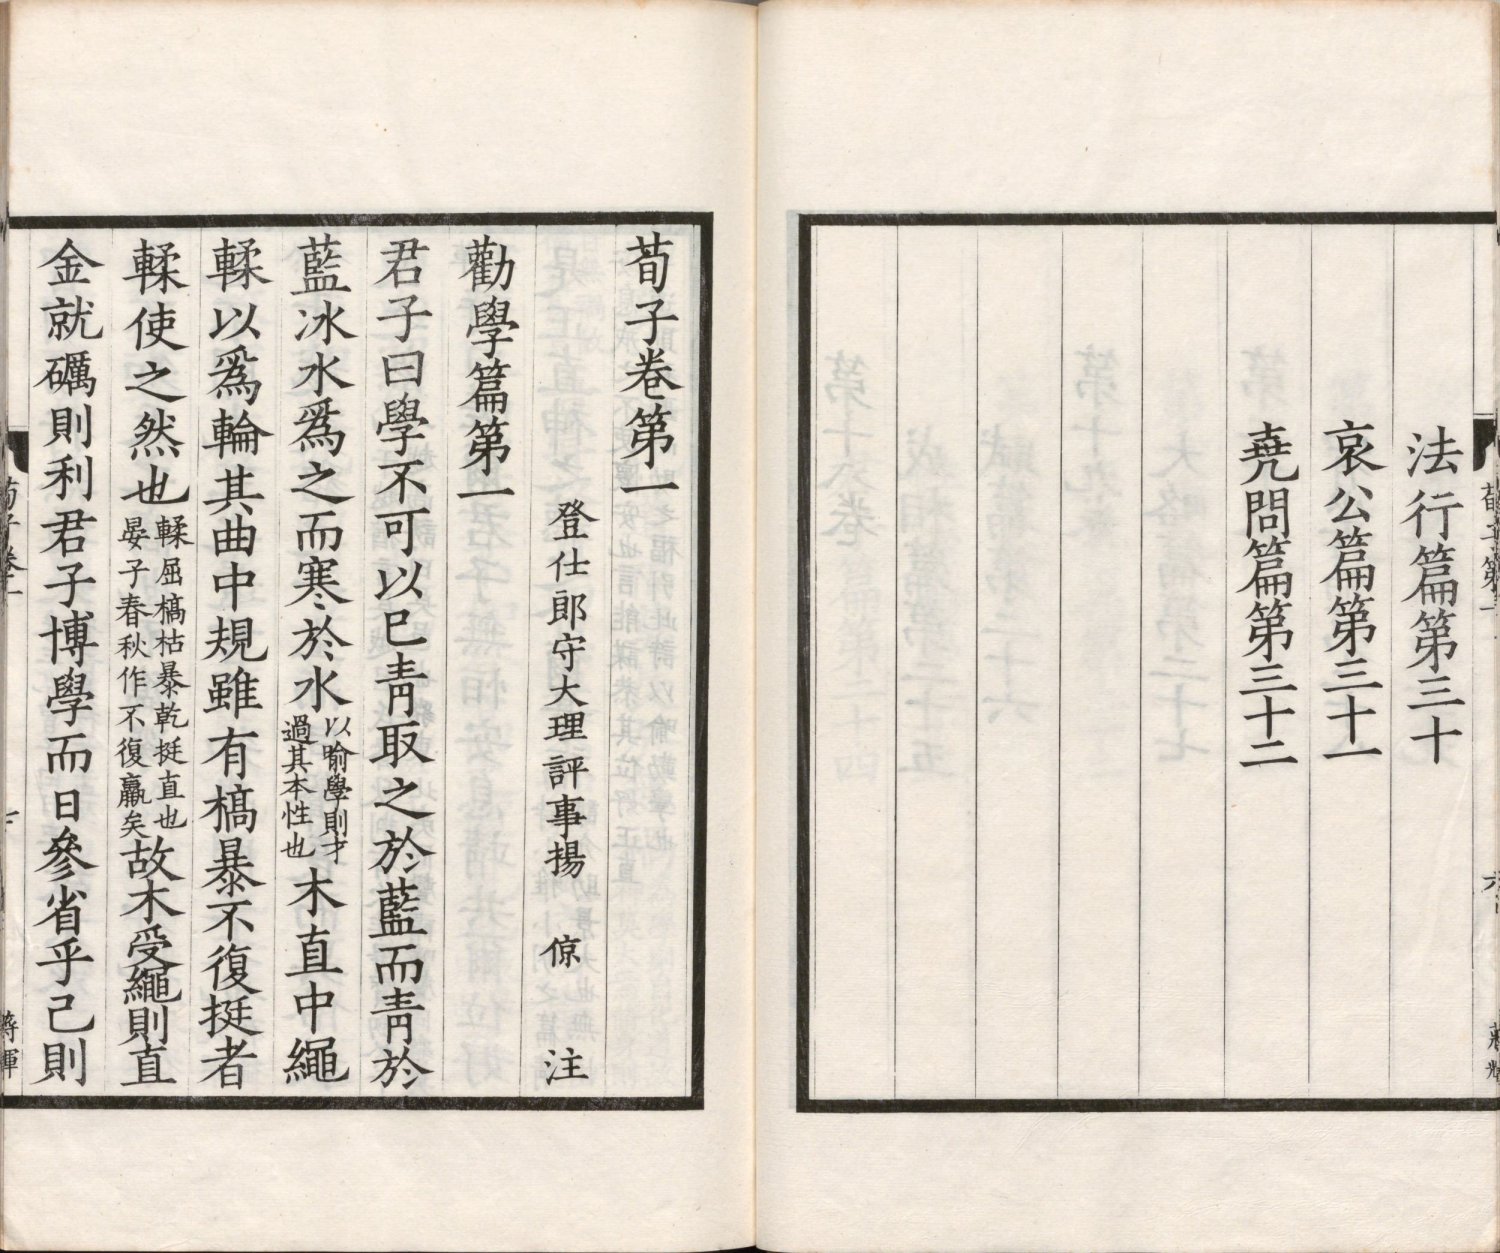 法行篇第三十
哀公篇第三十一
堯問篇第三十二
荀子卷第一
登仕郎守大理評事揚 倞 注
勸學篇第一
君子曰學不可以已靑取之於藍而靑於
藍冰水爲之而寒於水以喻學則才過其本性也木直中繩
輮以爲輪其曲中規雖有槁暴不復挺者
輮使之然也輮屈槁枯暴乾挺直也晏子春秋作不復羸矣故木受繩則直
金就礪則利君子博學而日參省乎己則